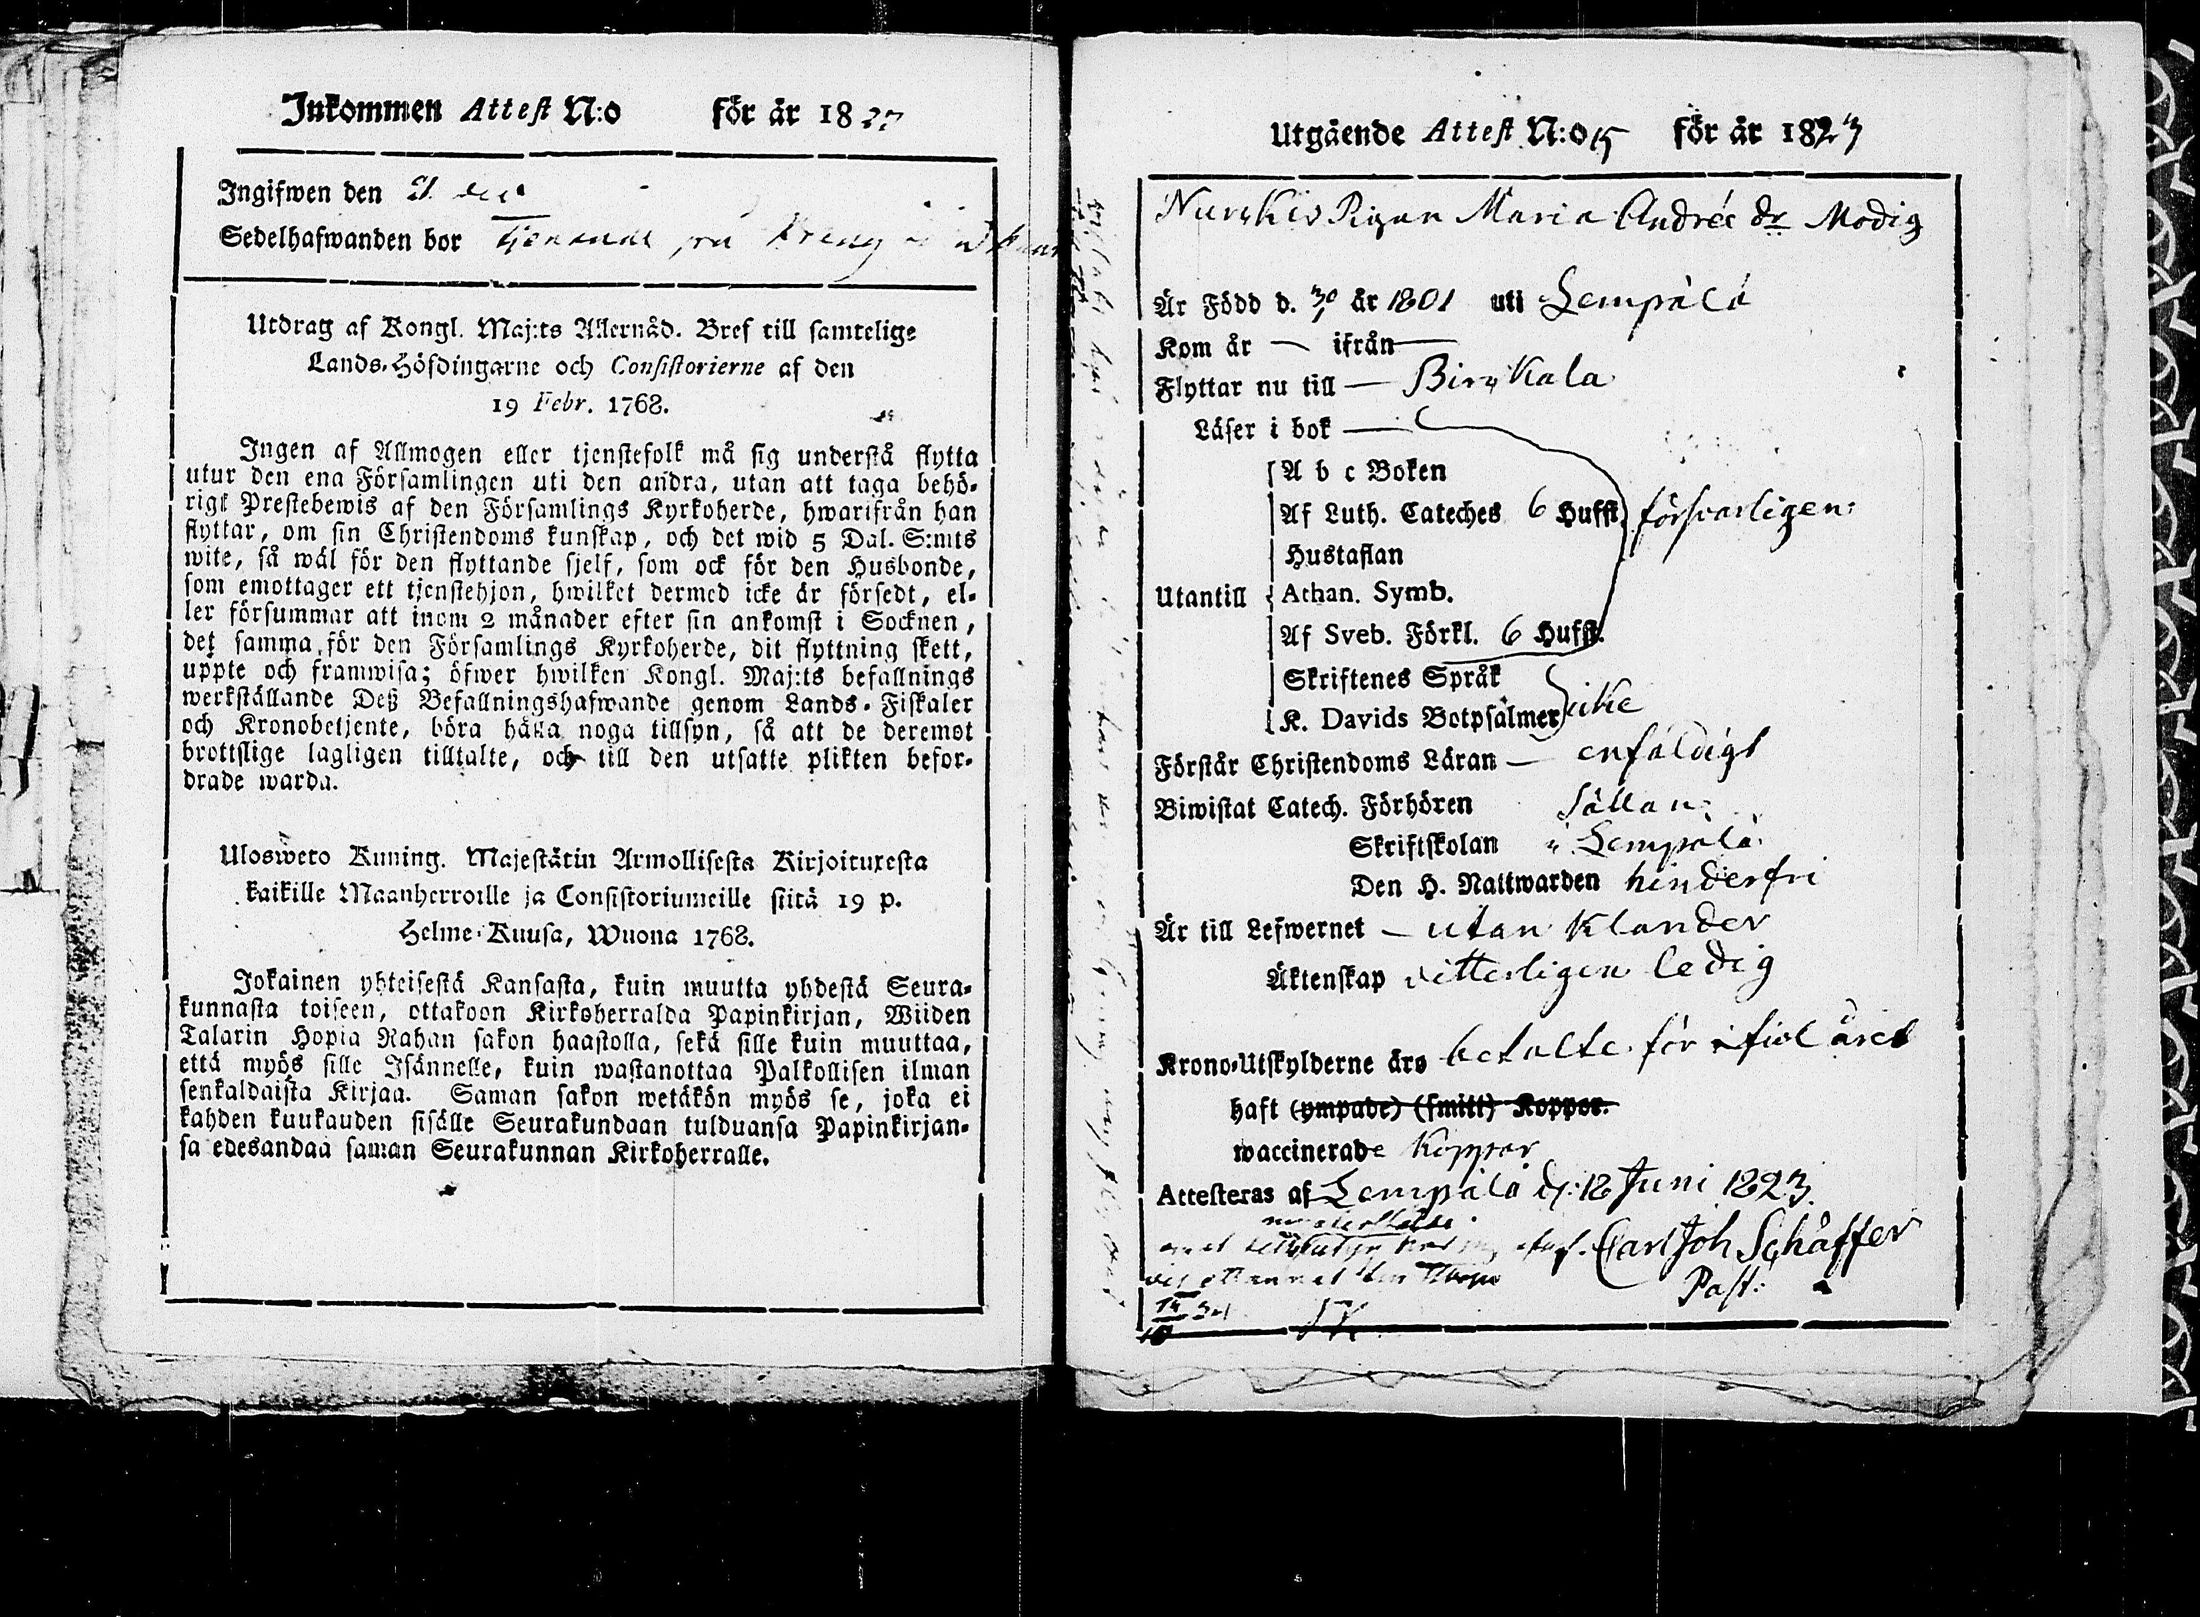 Inkommen Attest N:o för år 18
Ingifwen den
Sedelhafwanden bor
Utdrag af Kongl. Maj:ts Allernåd. Bref till samtelige
Lands-Höfdingarne och Consistorierne af den
19 Febr. 1768.
Ingen af Allmogen eller tjenstefolk må sig understå flytta
utur den ena Församlingen uti den andra, utan att taga behö-
rigt Prestebewis af den Församlings Kyrkoherde, hwarifrån han
flyttar, om sin Christendoms kunskap, och det wid 5 Dal. S:mts
wite, så wäl för den flyttande sjelf, som ock för den Husbonde,
som emottager ett tjenstehjon, hwilket dermed icke är försedt, el-
ler försummar att inom 2 månader efter sin ankomst i Socknen,
det samma för den Församlings Kyrkoherde, dit flyttning skett,
uppte och framwisa; öfwer hwilken Kongl. Maj:ts befallnings
werkställande Deß Befallningshafwande genom Lands-Fiskaler
och Kronobetjente, böra hålla noga tillsyn, så att de deremot
brottslige lagligen tilltalte, och till den utsatte plikten befor-
drade warda.
Ulosweto Kuning. Majestätin Armollisesta Kirjoituxesta
kaikille Maanherroille ja Consistoriumeille siitä 19 p.
Helme-Kuusa, Wuona 1768.
Jokainen yhteisestä Kansasta, kuin muutta yhdestä Seura-
kunnasta toiseen, ottakoon Kirkoherralda Papinkirjan, Wiiden
Talarin Hopia Rahan sakon haastolla, sekä sille kuin muuttaa,
että myös sille Isännelle, kuin wastanottaa Palkollisen ilman
senkaldaista Kirjaa. Saman sakon wetäkön myös se, joka ei
kahden kuukauden sisälle Seurakundaan tulduansa Papinkirjan-
sa edesandaa saman Seurakunnan Kirkoherralle.
Utgående Attest N:o 15 för år 1823
Pigan Maria Andrée dr Modig
Är Född d. år 1801 uti Lempälä
Kom år — ifrån —
Flyttar nu till — Birkkala
Läser i bok —
A b c Boken
Af Luth. Cateches 6 Hufst. försvarligen
Hustaflan
Utantill Athan. Symb.
Af Sveb. Förkl. 6 Hufst.
Skriftenes Språk
K. Davids Botpsalmer icke
Förstår Christendoms Läran — enfäldigt
Biwistat Catech. Förhören sällan
Skriftskolan i Lempälä
Den H. Nattwarden hinderfri
Är till Lefwernet — utan Klander
Äktenskap vitterligen ledig
Krono-Utskylderne äro betalte för året
haft (ympade) (smitt) Koppor.
waccinerade Koppor
Attesteras af Lempälä d. 18 Juni 1823.
Carl Joh Schäffer
Past: